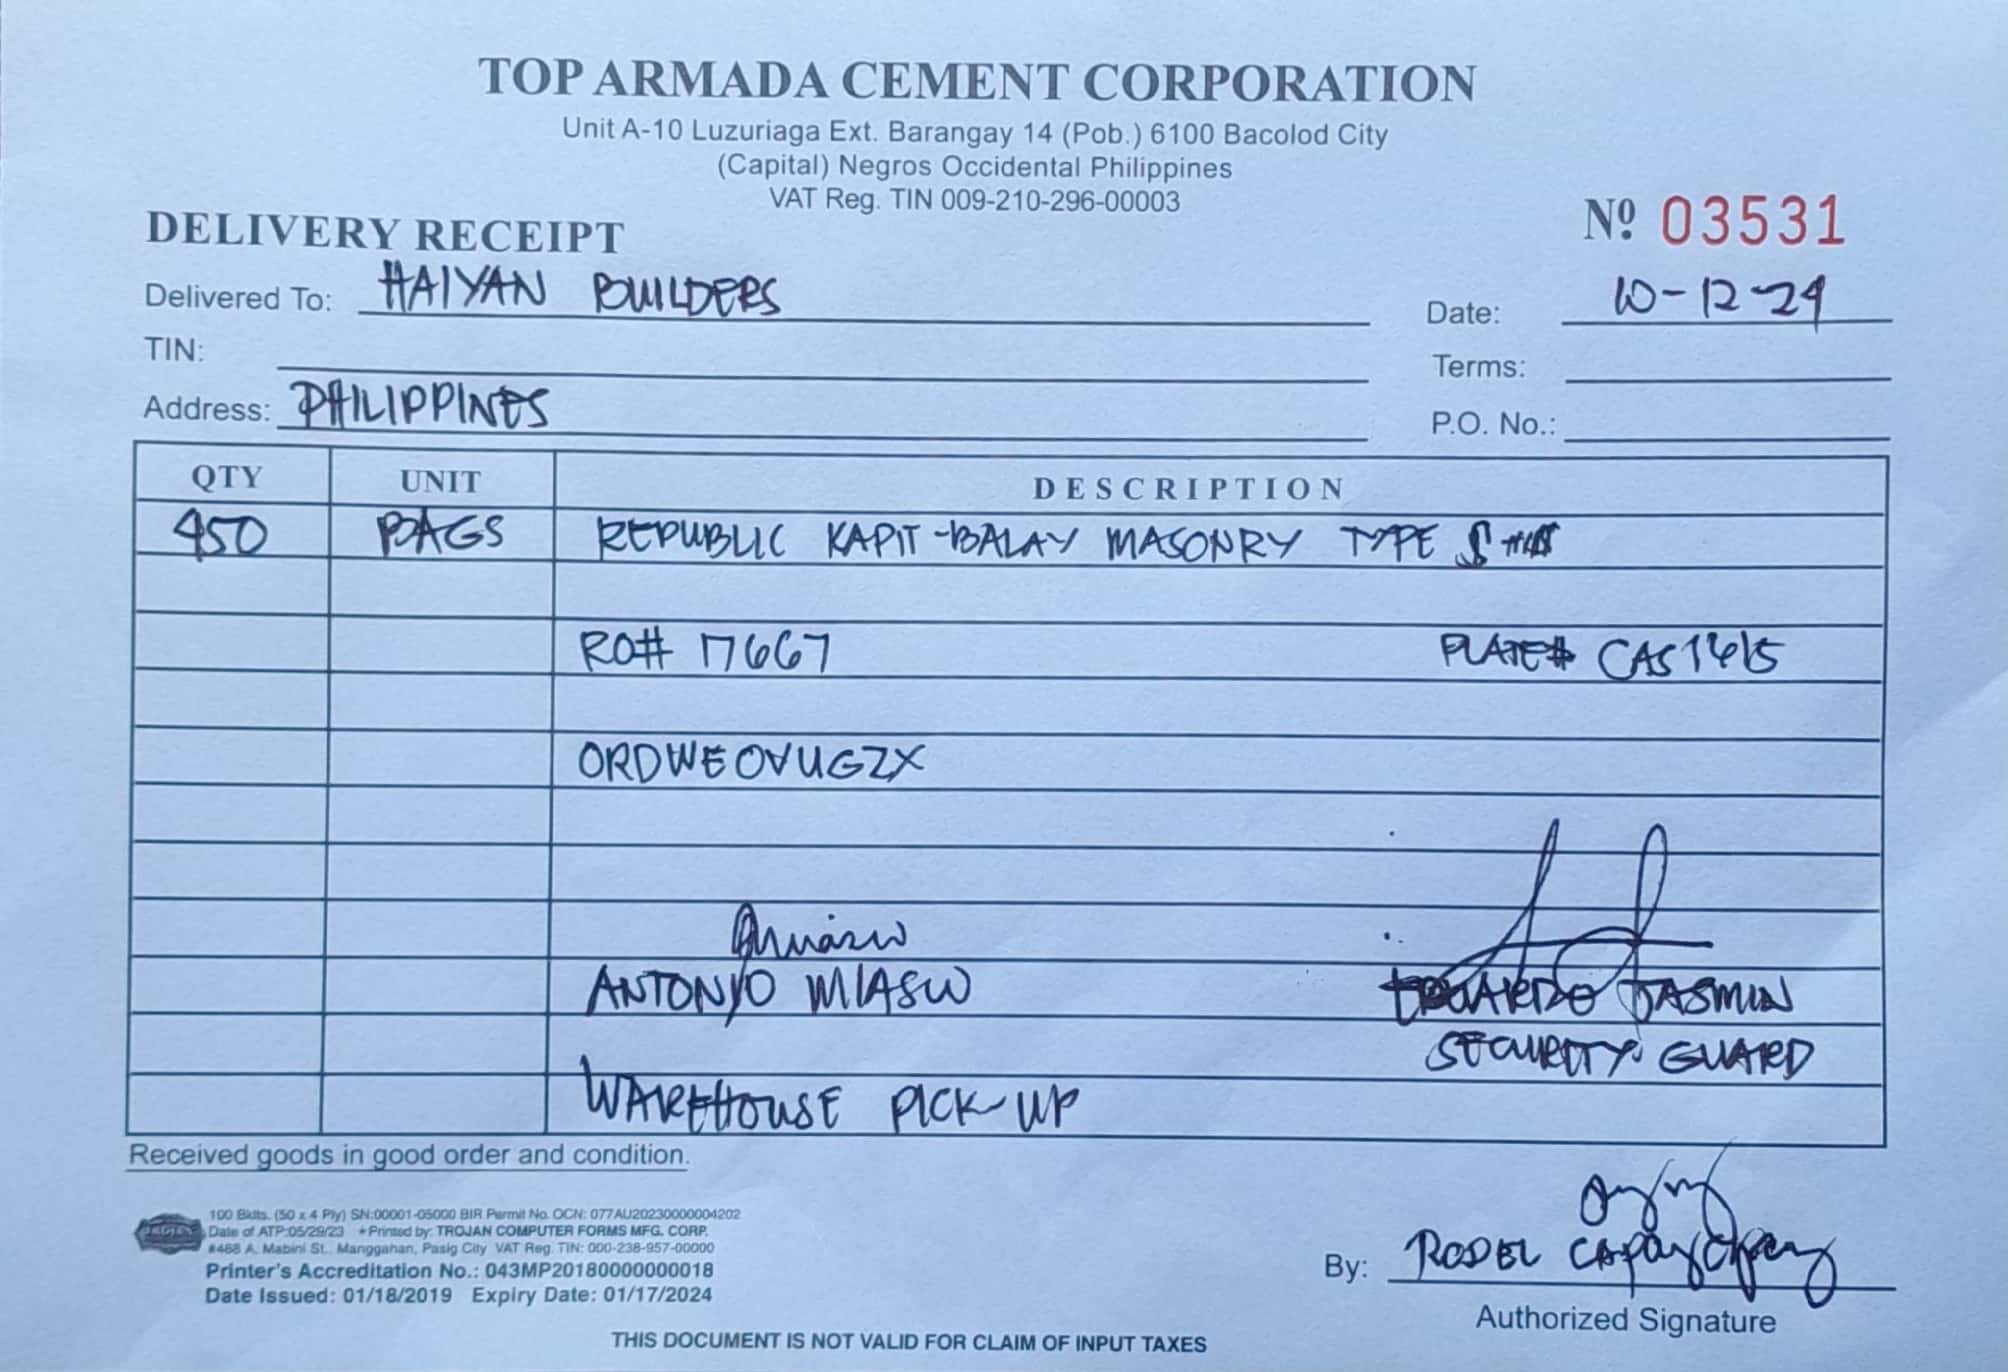 TOP ARMADA CEMENT CORPORATION
Unit A-10 Luzuriaga Ext. Barangay 14 (Pob.) 6100 Bacolod City
(Capital) Negros Occidental Philippines
VAT Reg. TIN 009-210-296-00003
DELIVERY RECEIPT
Nº 03531
Delivered To: HAIYAN BUILDERS
Date: 10-12-24
TIN:
Terms:
Address: PHILIPPINES
P.O. No.:
QTY UNIT DESCRIPTION
450 BAGS REPUBLIC KAPIT-BALAY MASONRY TYPE S
RO# 17667 PLATE# CAS1615
ORDWEOVUGZX
ANTONIO MIASCO EDUARDO JASMIN
SECURITY GUARD
WAREHOUSE PICK-UP
Received goods in good order and condition.
100 Bklts. (50 x 4 Ply) SN:00001-05000 BIR Permit No. OCN: 077AU20230000004202
Date of ATP:05/29/23 • Printed by: TROJAN COMPUTER FORMS MFG. CORP.
#468 A. Mabini St., Manggahan, Pasig City VAT Reg. TIN: 000-238-957-00000
Printer's Accreditation No.: 043MP20180000000018
Date Issued: 01/18/2019 Expiry Date: 01/17/2024
By: RODEL
Authorized Signature
THIS DOCUMENT IS NOT VALID FOR CLAIM OF INPUT TAXES